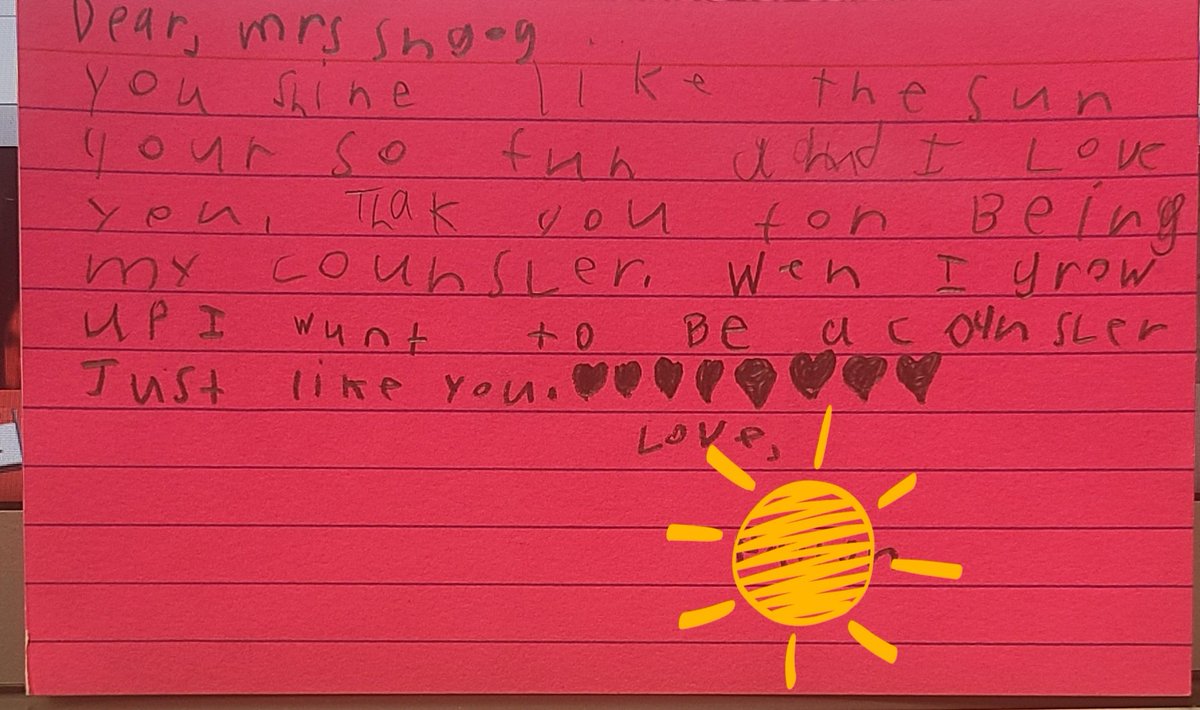 Dear, mrs snoog
you shine like the sun
your so fun and I Love
you. Thak you for Being
my counsLer. Wen I grow
UP I wunt to Be a counsLer
Just like you.♥♥♥♥♥♥♥♥
Love,